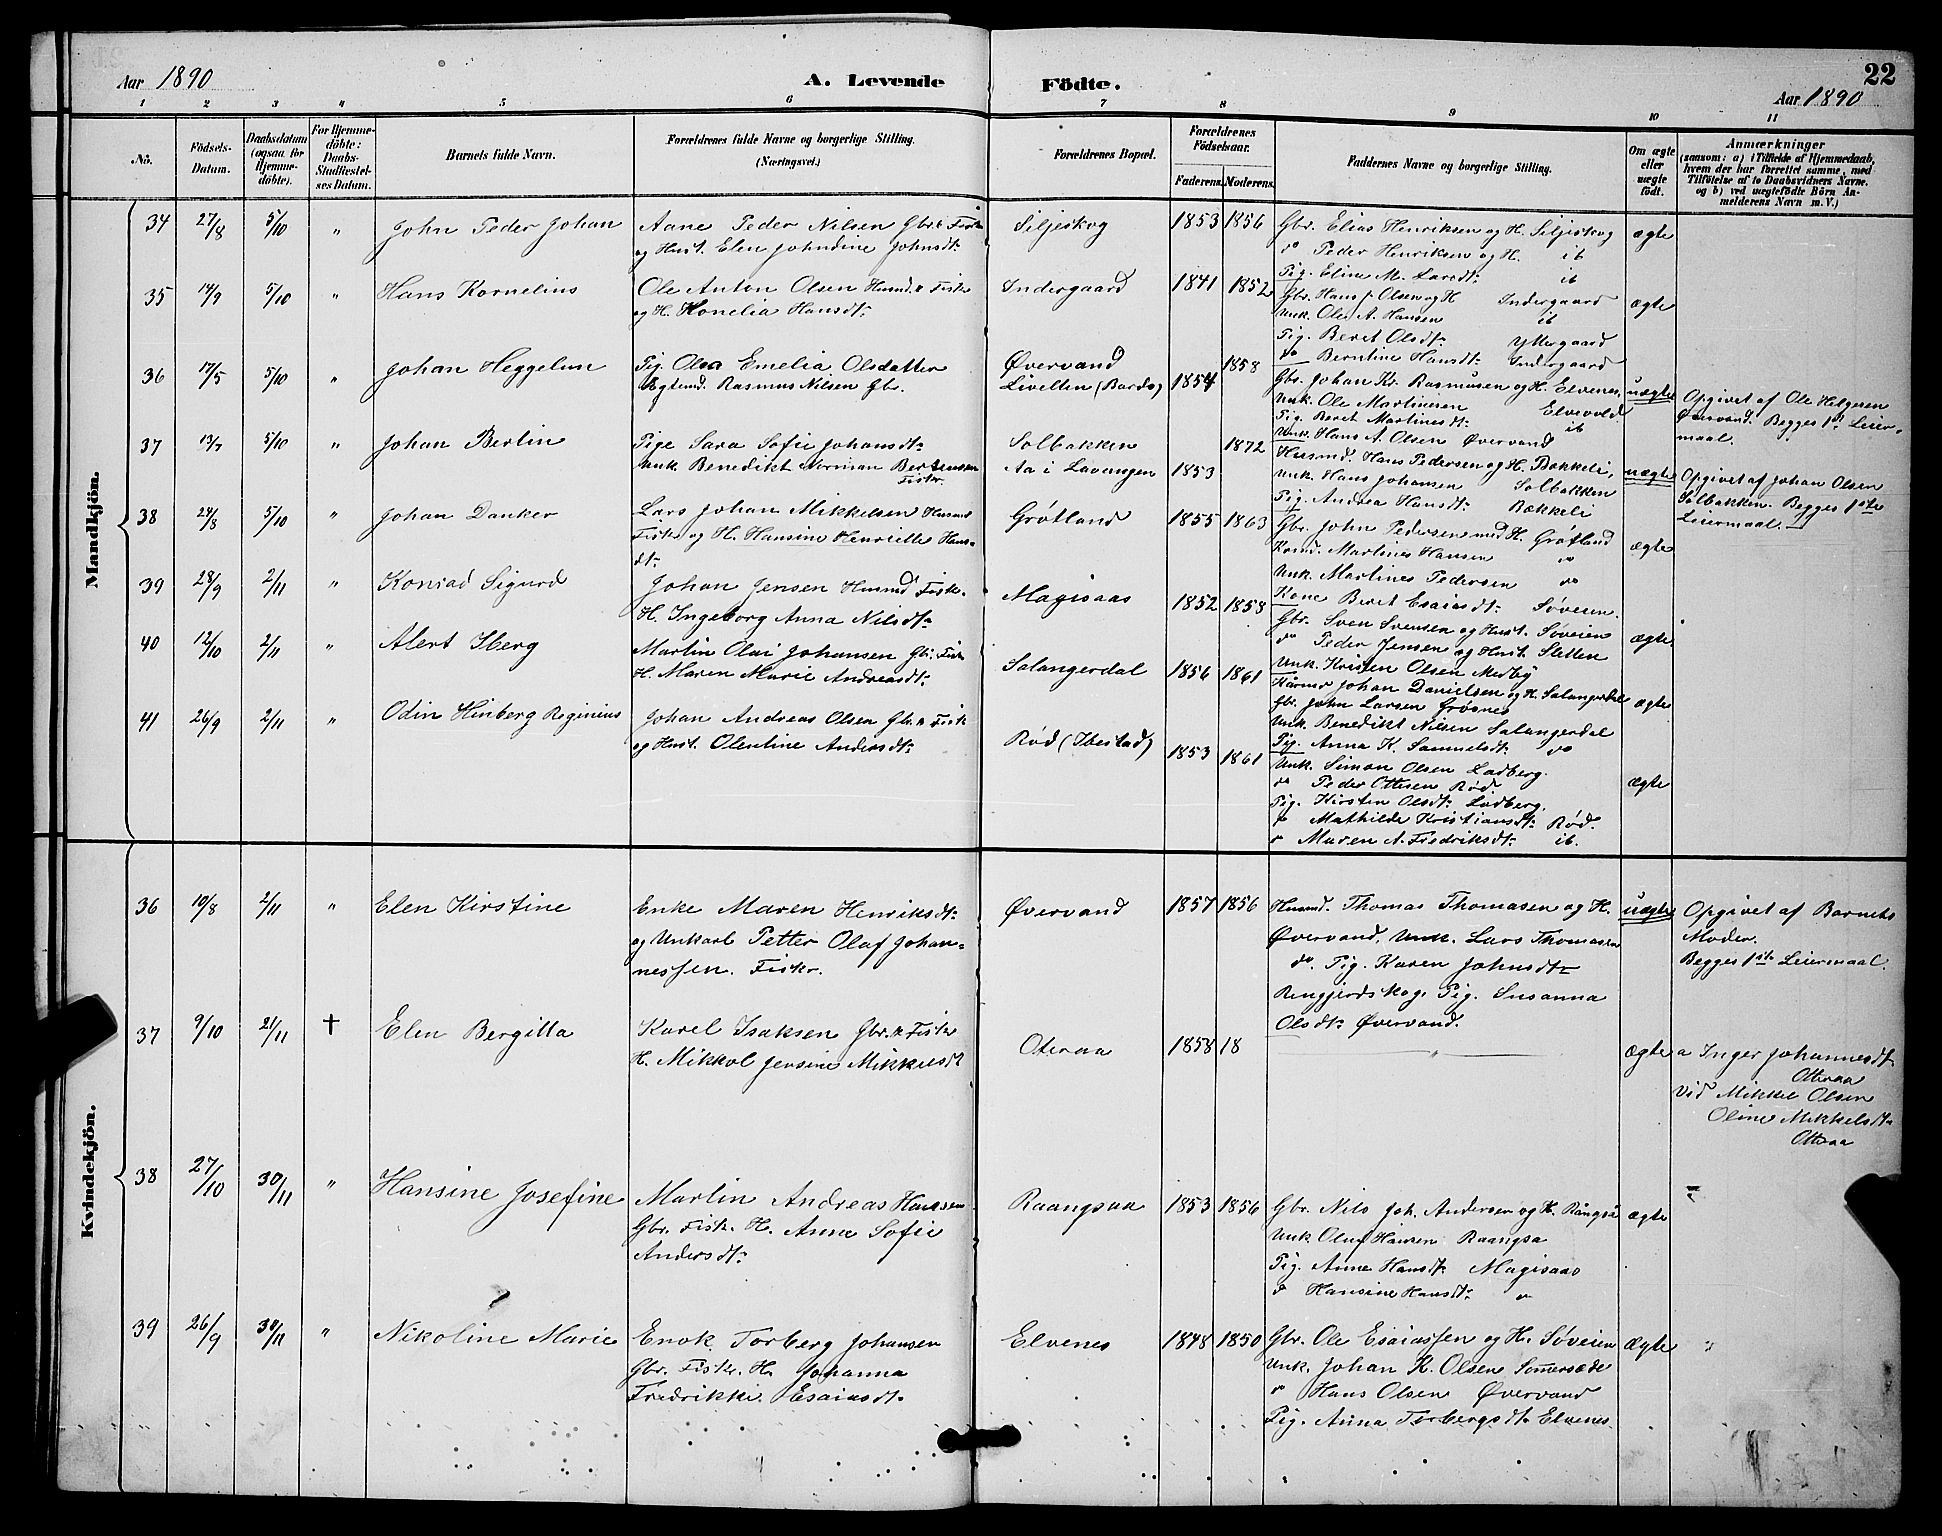 Aar 1890
A. Levende Födte.
22
Aar 1890
1 2 3 4 5 6 7 8 9 10 11
No.
Födsels-Datum.
Daabsdatum (ogsaa for Hjemmedöbte).
For Hjemmedöbte: Daabs-Stadfæstelses Datum.
Barnets fulde Navn.
Forældrenes fulde Navne og borgerlige Stilling. (Næringsvei.)
Forældrenes Bopæl.
Forældrenes Födselsaar.
Faderens. Moderens.
Faddernes Navne og borgerlige Stilling.
Om ægte eller uægte födt.
Anmærkninger
(saasom: a) i Tilfælde af Hjemmedaab, hvem der har forrettet samme, med Tilföielse af to Daabsvidners Navne. og b) ved uægtefödte Börn Anmelderens Navn m. V.)
Mandkjön.
34 27/8 5/10 " John Peder Johan
Aane Peder Nilsen Gbr. & Fisker
og Hust. Elen Johndine Johnsdt.
Siljeskog 1853 1856
Gbr. Elias Henriksen og H. Siljeskog
do Peder Henriksen og H. ib
Pig. Eline M. Larsdt. ib
ægte
35 14/9 5/10 " Hans Kornelius
Ole Anton Olsen Husmd. & Fisker
og H. Konelia Hansdt.
Indergaard 1841 1852
Gbr. Hans J. Olsen og H Indergaard
Unk. Ole A. Hansen ib
Pig. Beret Olsdt. Yttergaard
do Berntine Hansdt. Indergaard
ægte
36 17/5 5/10 " Johan Heggelun
Pig. Olea Emelia Olsdatter
Ægtemd. Rasmus Nilsen Gbr.
Øvervand
Livelten (Bardo) 1854 1858
Gbr. Johan Kr. Rasmusen og H. Elvenes,
Unk. Ole Martinisen Elvevold
Pig. Beret Martinesdt. ib
Unk. Hans A. Olsen Øvervand
uægte
Opgivet af Ole Helgesen
Øvervand. Begges 1st Leier-
maal.
37 13/7 5/10 " Johan Berlin
Pige Sara Sofie Johansdt.
Unk. Benedikt Norman Berntensen
Fisker.
Solbakken
Aa i Lavangen 1853 1872
Husmd. Hans Pedersen og H. Bakkeli,
Unk. Hans Johansen Solbakken
Pig. Andrea Hansdt. Bakkeli
uægte
Opgivet af Johan Olsen
Solbakken. Begges 1ste
Leiermaal.
38 24/8 5/10 " Johan Danker
Lars Johan Mikkelsen Husmd
Fisker og H. Hansine Henriette Hans-
dt.
Grøtland 1855 1863
Gbr. John Pedersen med H. Grøtland
Martines Hansen "
Unk. Martines Pedersen do
Kone Beret Esaiasdt. Søveien.
ægte
39 28/9 2/11 " Konrad Sigurd
Johan Jensen Husmd Fisk.
H. Ingeborg Anna Nilsdt.
Magisaas 1852 1858
Gbr. Sven Svensen og Hust. Søveien
do Peder Jensen og Hust Sletten
Unk. Kristen Olsen Medby
ægte.
40 12/10 2/11 " Alert Iberg
Martin Olai Johansen Gbr. Fisker
H. Maren Marie Andreasdt.
Salangerdal 1856 1861
Johan Danielsen og H. Salangerdal
Gbr. John Larsen Grøsnes
Unk. Benedikt Nilsen Salangerdal
Pig. Anna K. Samuelsdt. do
ægte
41 26/9 2/11 " Odin Hinberg Reginius
Johan Andreas Olsen Gbr. & Fisk
og Hust. Olentine Andersdt.
Rød (Ibestad) 1853 1861
Unk. Simon Olsen Ladberg.
do Peder Ottesen Rød
Pig. Kirsten Olsdt. Ladberg.
do Mathilde Kristiansdt. Rød.
do Maren A. Fredriksdt. ib.
ægte
Kvindekjön.
36 10/8 2/11 " Elen Kirstine
Enke Maren Henriksdt.
og Unkarl Petter Olaf Johan-
nessen. Fisker.
Øvervand 1857 1856
Husmd. Thomas Thomasen og H.
Øvervand, Unk. Lars Thomasen
do. Pig. Karen Johnsdt.
Rengjerdskog, Pig. Susanna
Olsdt. Øvervand.
uægte
Opgivet af Barnets
Moder.
Begges 1ste Leiermaal.
37 9/10 21/11 † Elen Bergitta
Karel Isaksen Gbr. & Fisker
H. Mikkol Jensine Mikkelsdt
Oteraa 1858 18
"
ægte
a Inger Johannesdt.
Otteraa
Vid Mikkel Olsen
Oline Mikkelsdt.
Otteraa
38 27/10 30/11 " Hansine Josefine
Martin Andreas Hansen
Gbr. Fisk. H. Anne Sofie
Andersdt.
Raangsaa 1853 1856
Gbr. Nils Joh. Andersen og H. Rångså
Unk. Oluf Hansen Raangsa
Pig. Anne Hansdt. Magisaas
do Hansine Hansdt. "
ægte
39 26/9 30/11 " Nikoline Marie
Enok Torberg Johansen
Gbr. Fisker. H. Johanna
Fredrikke Esaiasdt.
Elvenes 1848 1850
Gbr. Ole Esaiassen og H. Søveien
Unk. Johan K. Olsen Somersæde
do Hans Olsen Øvervand
Pig. Anna Torbergsdt. Elvenes
ægte "